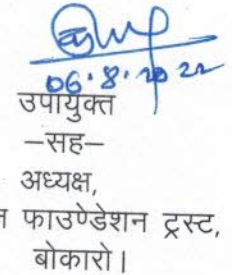 06.8.2022
उपायुक्त
–सह–
अध्यक्ष,
फाउण्डेशन ट्रस्ट,
बोकारो।